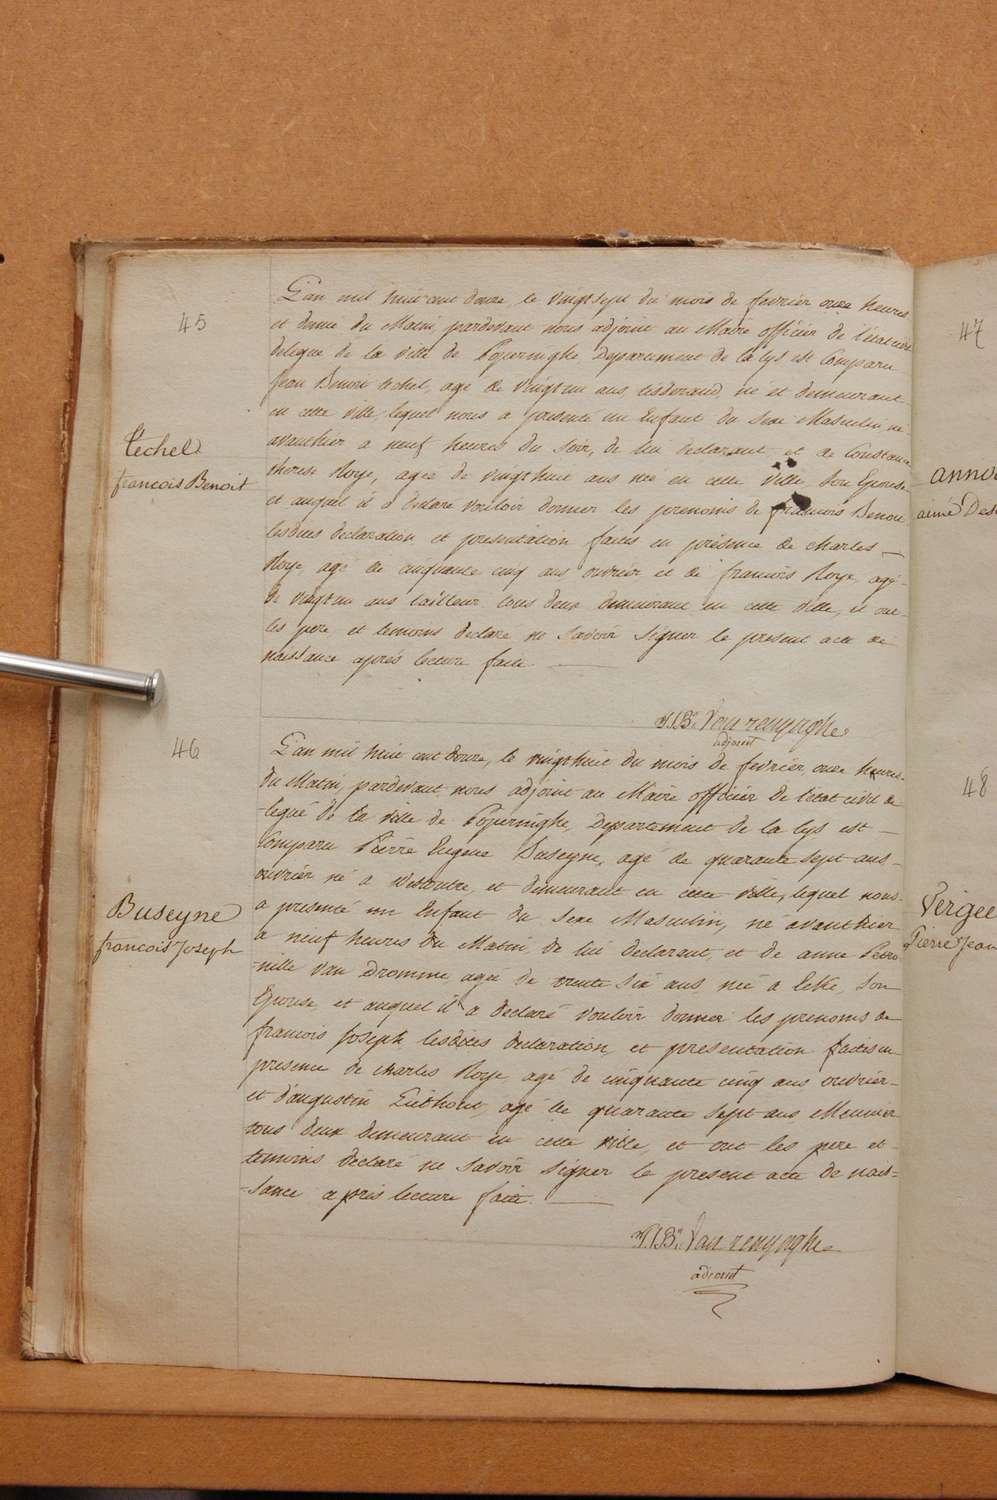 45
Techel
francois Benoit
L'an mil huit cent douze, le vingt sept du mois de fevrier onze heures
et demie du Matin, pardevant nous adjoint au Maire officier de l'etat civil
delegué de la ville de Poperinghe Departement de la Lys est Comparu
Jean Benoit techel, agé de vingt un ans, tisserand, né et demeurant
en cette ville, lequel nous a presenté un Enfant du sexe Masculin, né
avanthier a neuf heures du soir, de lui declarant et de Constance
therese Roye, agée de vingthuit ans née en cette ville son Epouse
et auquel il a declaré vouloir donner les prenoms de francois Benoit
lesdites declaration et presentation faites en présence de charles
Roye, agé de cinquante cinq ans ouvrier et de francois Roye, agé
de vingt un ans tailleur tous deux demeurant en cette ville, et ont
les pere et temoins declaré ne savoir signer le present acte de
naissance après lecture faite.
P.J.B. Van renynghe
adjoint
46
Buseyne
francois Joseph
L'an mil huit cent douze, le vingthuit du mois de fevrier, onze heures
du Matin, pardevant nous adjoint au Maire officier de l'etat civil de
-legué de la ville de Poperinghe, Departement de la Lys est
Comparu Pierre Eugene Buseyne, agé de quarante sept ans
ouvrier né a Westoutre, et demeurant en cette ville, lequel nous
a presenté un Enfant du sexe Masculin, né avanthier
a neuf heures du Matin, de lui declarant, et de anne Petro
-nille Van Dromme, agée de trente six ans, née a Leke, son
Epouse, et auquel il a declaré vouloir donner les prenoms de
francois Joseph, lesdites declaration, et presentation faites en
presence de charles Roye, agé de cinquante cinq ans ouvrier
et d'augustin agé de quarante sept ans, Meunier
tous deux demeurant en cette ville, et ont les pere et
temoins declaré ne savoir signer le present acte de nais-
-sance après lecture faite.
P.J.B. Van renynghe
adjoint
47
anno
aimé Des
48
Vergee
Pierre Jean